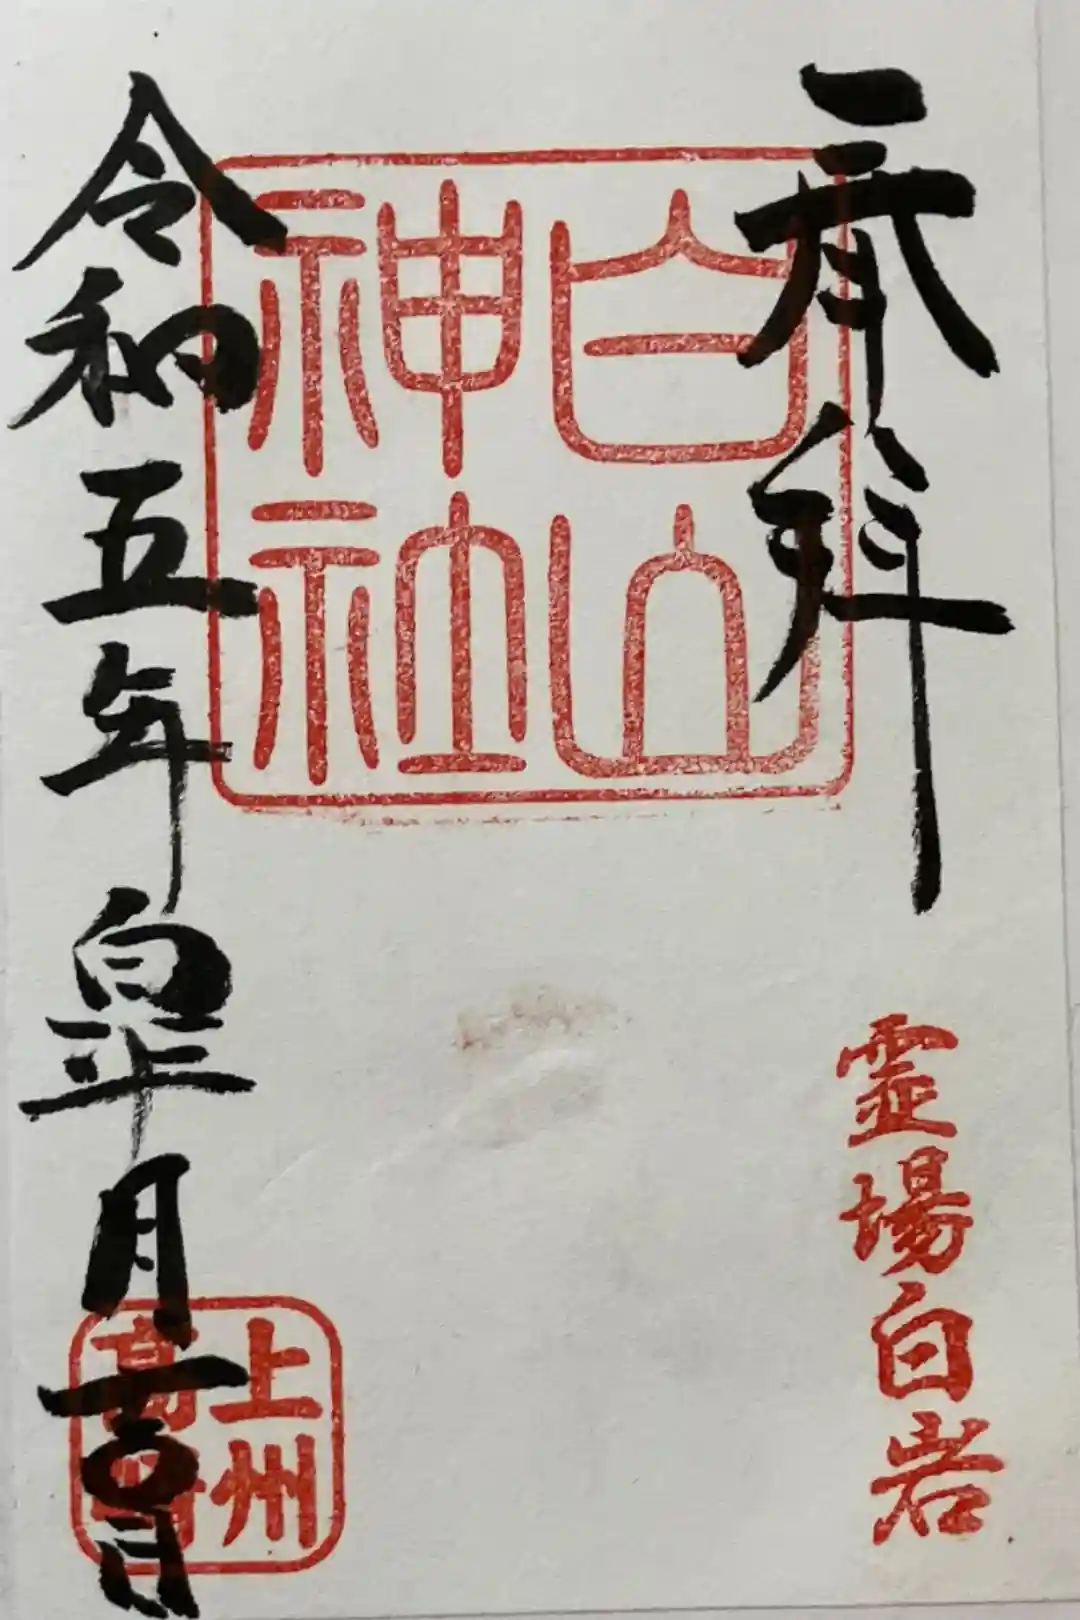 奉拝
霊場白岩
白山
神社
令和五年皐月日
上州
高崎